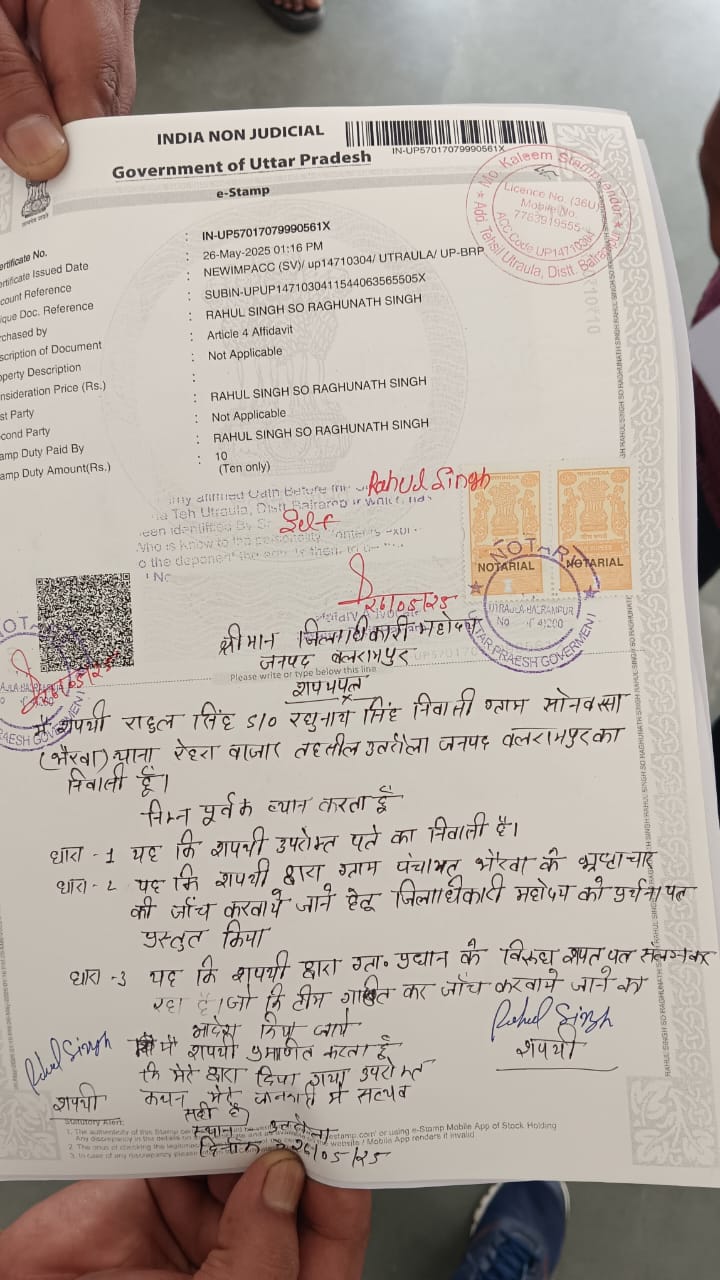 INDIA NON JUDICIAL
IN-UP57017079990561X
Government of Uttar Pradesh
e-Stamp
Mo. Kaleem Stamp Vendor
Licence No. (36U)
Mobile No.
7783919555
ACC Code UP14710304
Add. Tehsil Utraula, Distt. Balrampur
ertificate No. : IN-UP57017079990561X
ertificate Issued Date : 26-May-2025 01:16 PM
count Reference : NEWIMPACC (SV)/ up14710304/ UTRAULA/ UP-BRP
ique Doc. Reference : SUBIN-UPUP1471030411544063565505X
rchased by : RAHUL SINGH SO RAGHUNATH SINGH
scription of Document : Article 4 Affidavit
operty Description : Not Applicable
nsideration Price (Rs.) :
st Party : RAHUL SINGH SO RAGHUNATH SINGH
cond Party : Not Applicable
amp Duty Paid By : RAHUL SINGH SO RAGHUNATH SINGH
amp Duty Amount(Rs.) : 10
(Ten only)
Oath Before me
Rahul Singh
Teh Utraula, Distt Balrampur
een identified By
Self
Who is know to the
o the deponent
NOTARIAL NOTARIAL
NOTARY
UTRAULA-BALRAMPUR
UTTAR PRAESH GOVERMENT
26/05/25
श्रीमान जिलाधिकारी महोदय
जनपद बलरामपुर
Please write or type below this line
शपथपत्र
मैं शपथी राहुल सिंह S/O रघुनाथ सिंह निवासी ग्राम मोनवस्सा
(भैरवा) थाना रेहरा बाजार तहसील उतरौला जनपद बलरामपुर का
निवासी हूँ।
निम्न पूर्वक ब्यान करता हूँ
धारा - 1 यह कि शपथी उपरोक्त पते का निवासी है।
धारा - 2 यह कि शपथी द्वारा ग्राम पंचायत भैरवा के भ्रष्टाचार
की जाँच करवाये जाने हेतू जिलाधिकारी महोदय को प्रर्थना पत्र
प्रस्तुत किया
धारा - 3 यह कि शपथी द्वारा ग्रा. प्रधान के विरुध शपत पत्र संलग्न कर
रहा है। जो कि टीम गठित कर जाँच करवाये जाने का
आदेश किया जाये
Rahul Singh
शपथी
मैं शपथी प्रमाणित करता हूँ
कि मेरे द्वारा दिया गया उपरोक्त
कथन मेरे जानकारी में सत्यव
सही है
Rahul Singh
शपथी
स्थान उतरौला
दिनांक 26/05/25
Statutory Alert:
1. The authenticity of this Stamp or using e-Stamp Mobile App of Stock Holding
Any discrepancy in the details on website / Mobile App renders it invalid
2. The onus of checking the legitimacy
3. In case of any discrepancy please
RAHUL SINGH SO RAGHUNATH SINGH